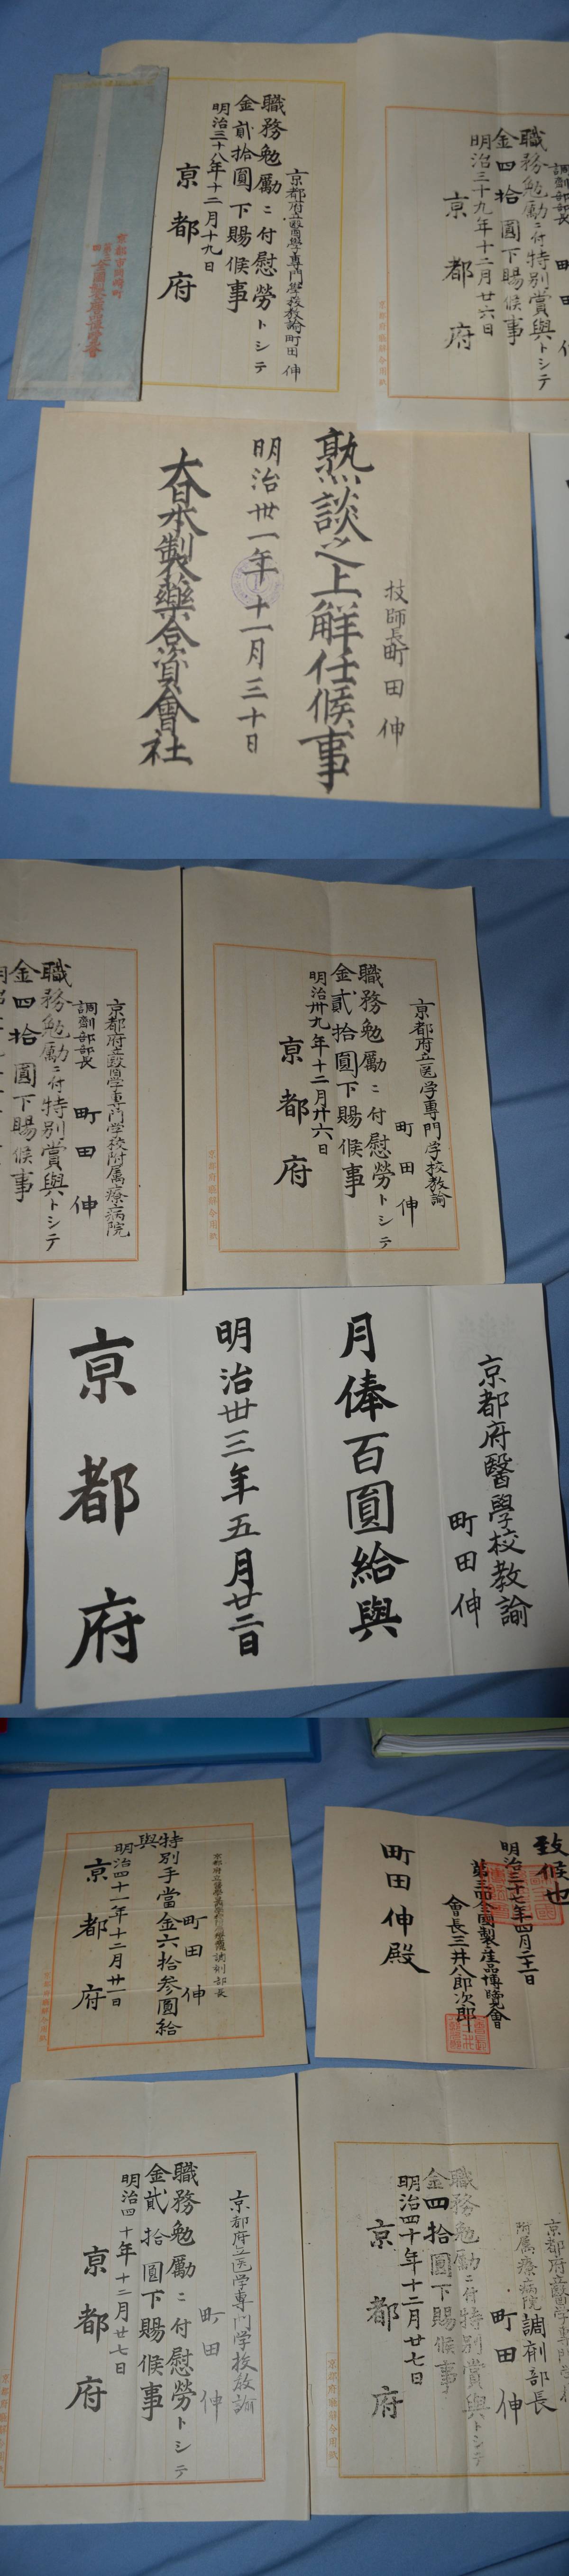 京都府立醫學専門學校教諭町田伸
職務勉勵ニ付慰勞トシテ
金貳拾圓下賜候事
明治三十八年十二月十九日
京都府
調劑部部長
職務勉勵ニ付特別賞與トシテ
金四拾圓下賜候事
明治三十九年十二月廿六日
京都府
技師長町田伸
熟談之上解任候事
明治丗一年十一月三十日
大日本製藥合資會社
京都府立醫学専門学校附属療病院
調劑部部長
町田伸
職務勉勵ニ付特別賞與トシテ
金四拾圓下賜候事
京都府立医学専門学校教諭
町田伸
職務勉勵ニ付慰勞トシテ
金貳拾圓下賜候事
明治丗九年十二月廿六日
京都府
京都府醫學校教諭
町田伸
月俸百圓給與
明治丗三年五月廿二日
京都府
調剤部長
町田伸
特別手當金六拾参圓給
與
明治四十一年十二月廿一日
京都府
致候也
明治三十七年四月二十一日
第三回全國製産品博覧會
會長三井八郎次郎
町田伸殿
京都府立医学専門学校教諭
町田伸
職務勉勵ニ付慰勞トシテ
金貳拾圓下賜候事
明治四十年十二月廿七日
京都府
京都府立醫学専門学校
附属療病院調剤部長
町田伸
職務勉勵ニ付特別賞與トシテ
金四拾圓下賜候事
明治四十年十二月廿七日
京都府